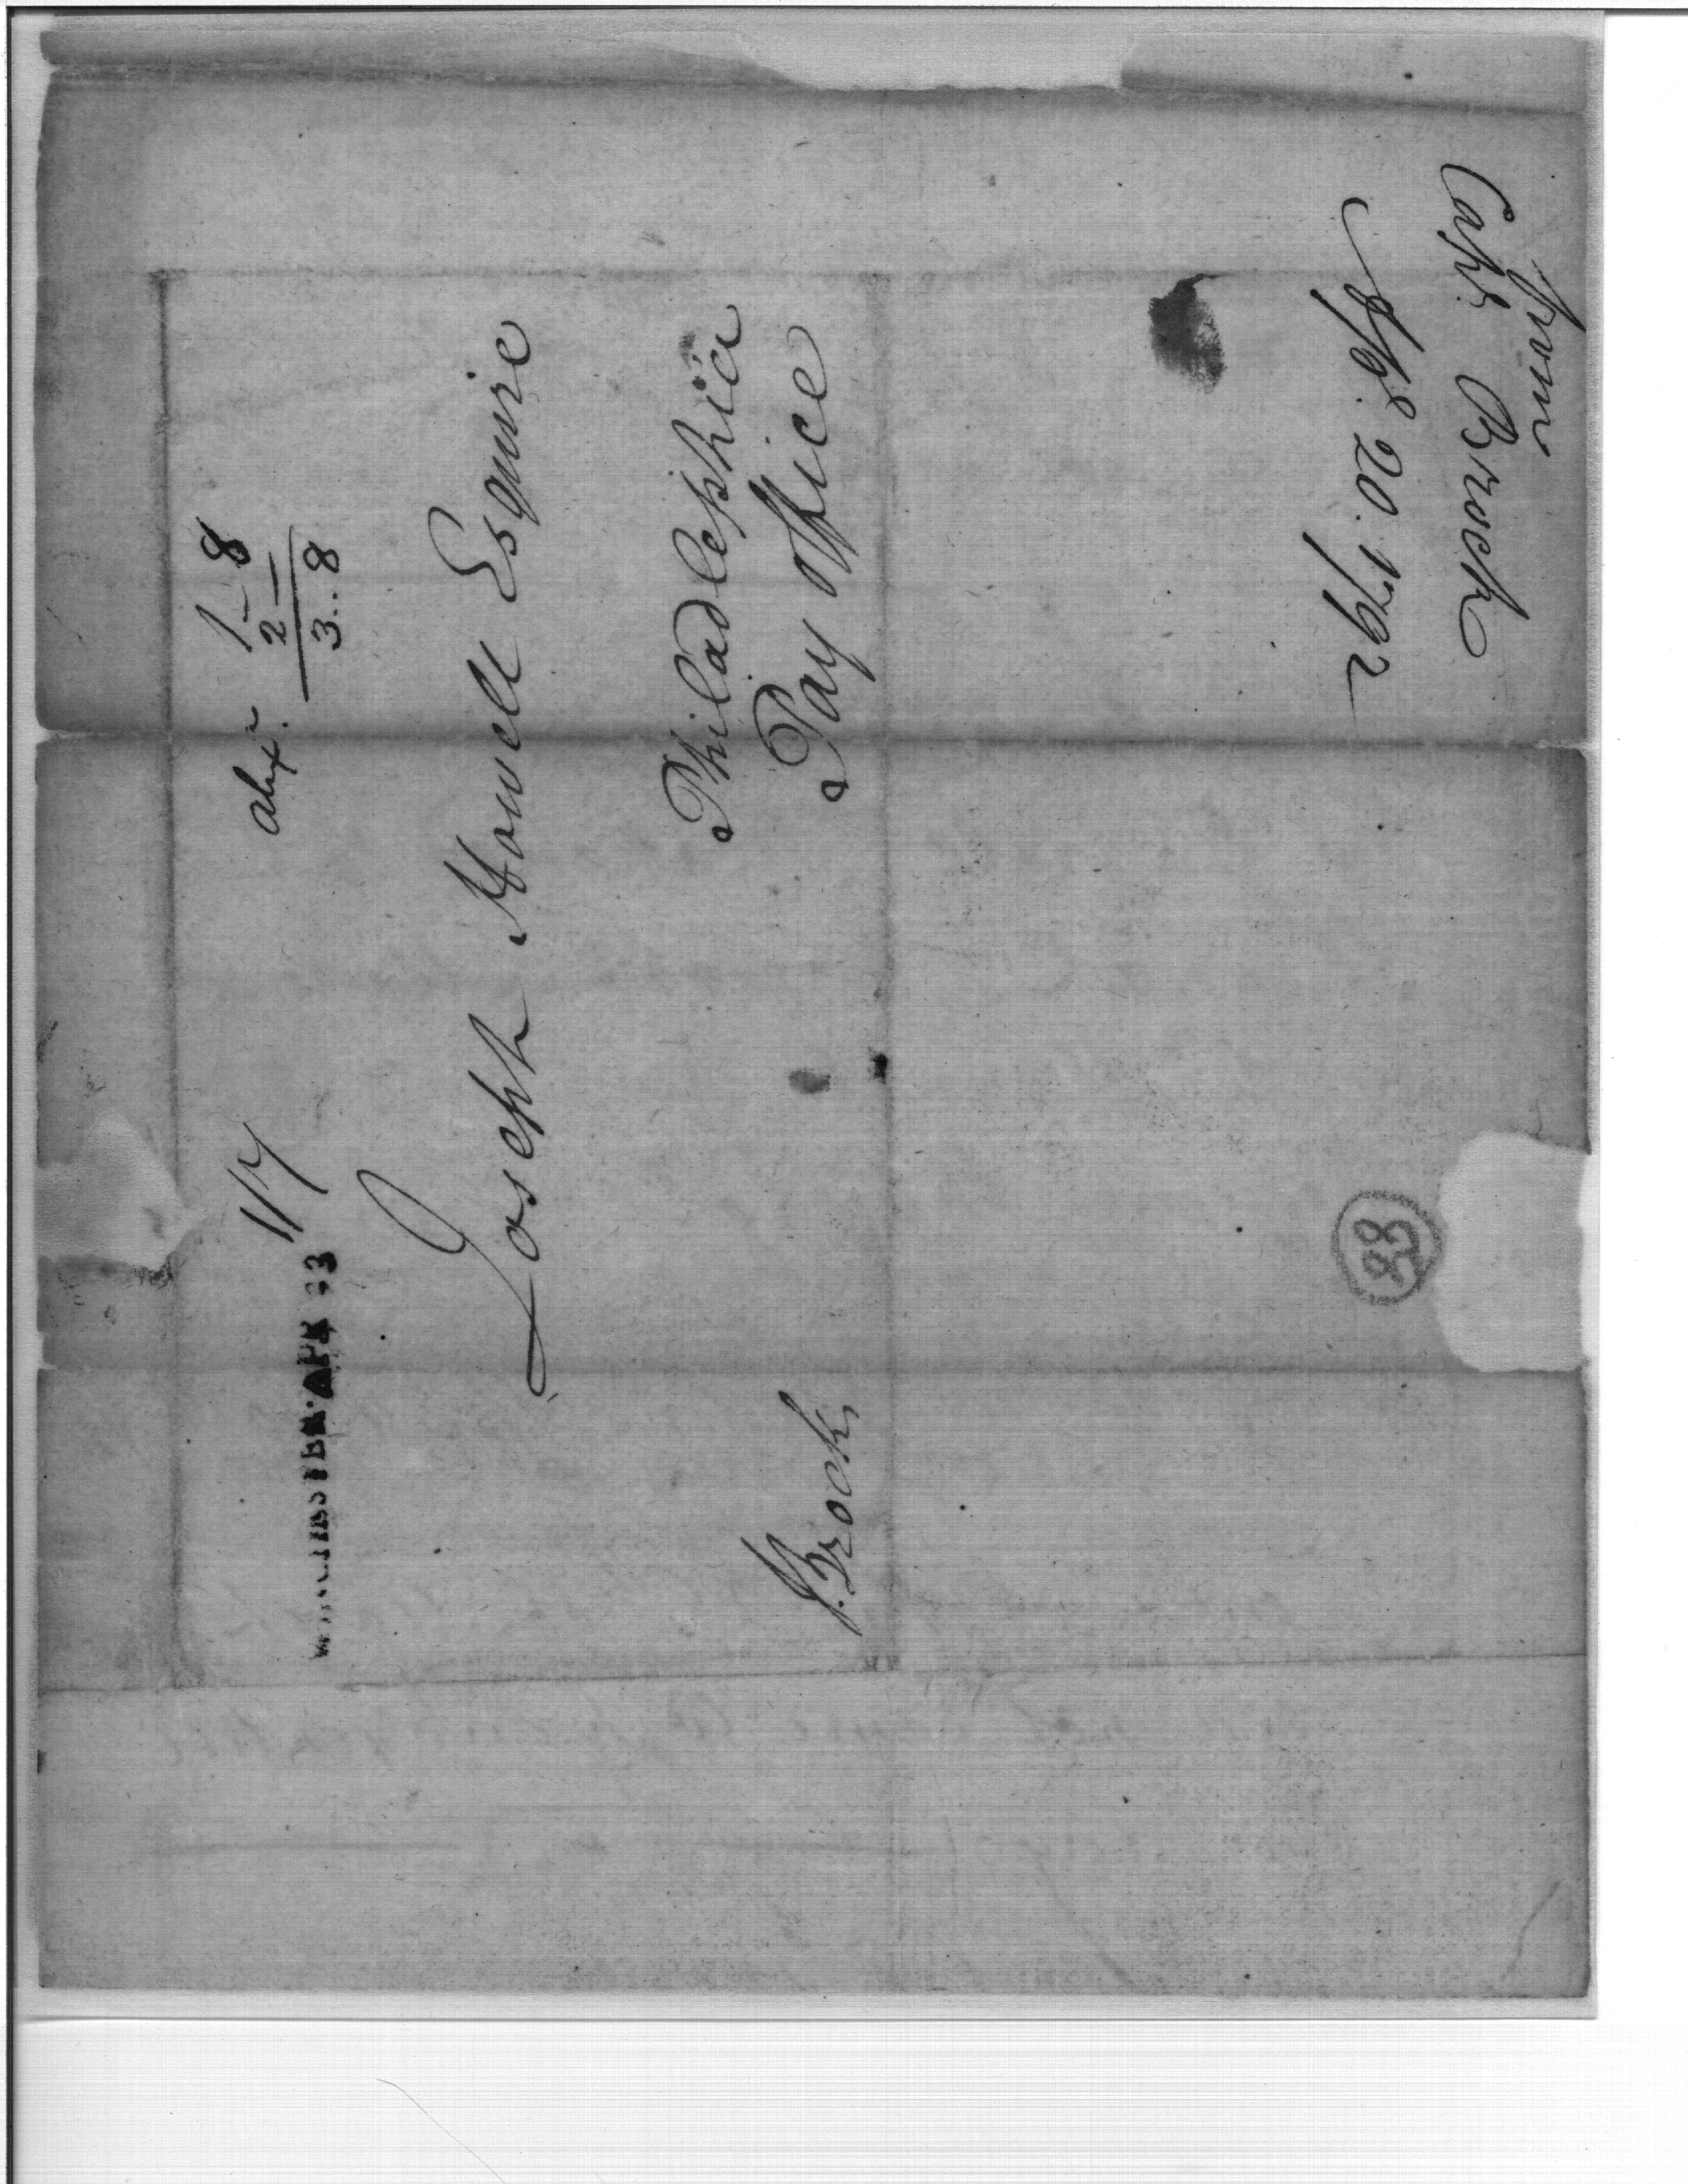 alexa. 1-8
2-
3..8
WINCHESTER·APR 23
1/7
Joseph Howell Esquire
Philadlephia
Pay Office
J. Brock
From
Capt. Brock
Apl. 20. 1792